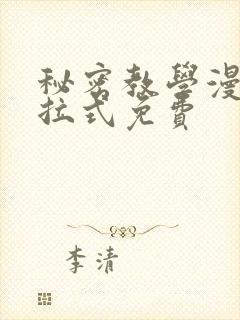 秘密教學漫
拉式免費
李清